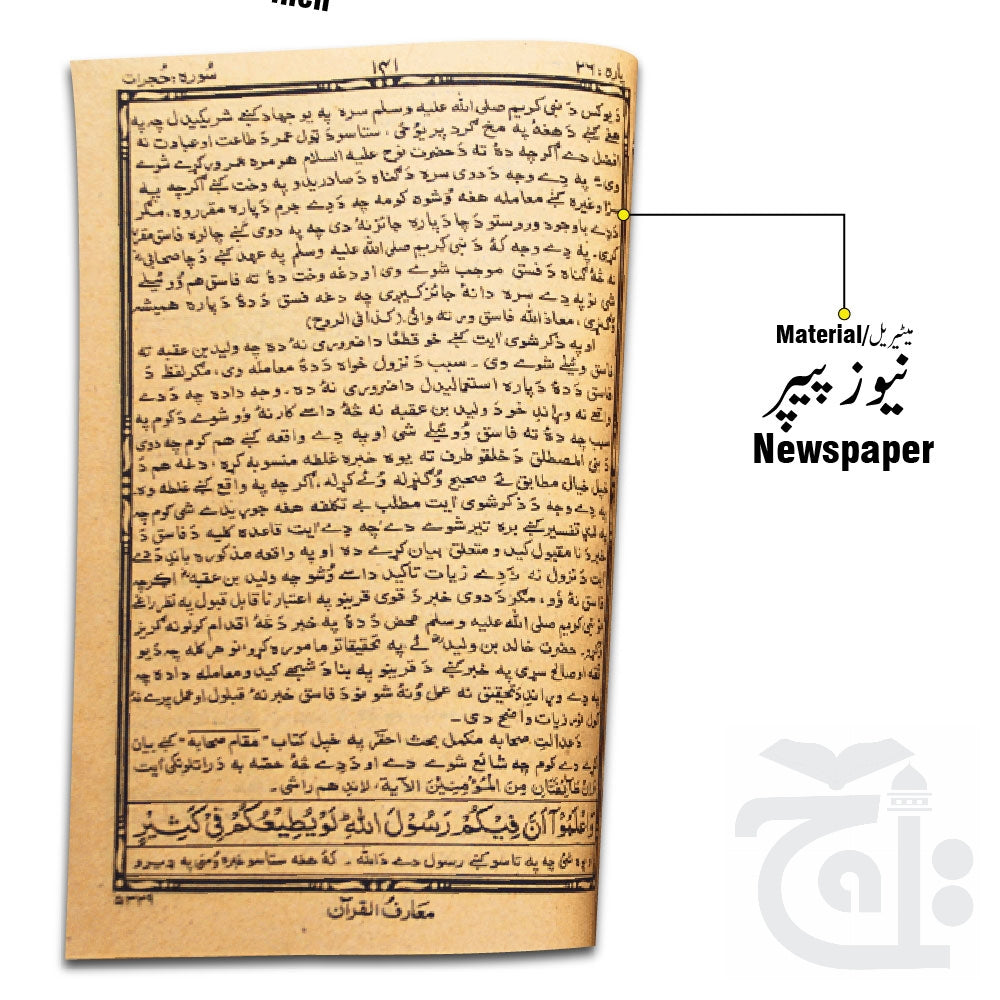 سُوره: حُجرات ۱۴۱ پاره: ۲۶
دَ یوکس دَ نبی کریم صلی الله علیه وسلم سره په یو جهاد کښے شریکیدل چه په
هغے کښے دَ هغهٔ په مخ ګرد پریوځی، ستاسو دَ ټول عمر دَ طاعت او عبادت نه
افضل دے اګرچه دهٔ ته دَ حضرت نوح علیه السلام هومره عمر ورکړے شوے
وی۔ په دے وجه دَ دوی سره دَ ګناه دَ صادریدو په وخت کښے اګرچه په
سزا وغیره کښے معامله هغه وُشوه کومه چه دَ دے جرم دَ پاره مقرر وه، مګر
دَ دے باوجود وروستو دَ چا دَ پاره جائز نهٔ دی چه په دوی کښے چالره فاسق مقرر
کړی۔ په دے وجه کهٔ دَ نبی کریم صلی الله علیه وسلم په عهد کښے دَ چا صحابی
نه څهٔ ګناه دَ فسق موجب شوے وی او دغه وخت دهٔ ته فاسق هم وُر ئیلے
شی نو په دے سره دا نهٔ جائز کیږی چه دغه فسق دَ دهٔ دَ پاره همیشه
وُګڼړی، معاذ الله فاسق ورته وائی۔ (کذا فی الروح)
او په ذکر شوی اٰیت کښے خو قطعًا دا ضروری نهٔ ده چه ولید بن عقبه ته
فاسق وئیلے شوے وی۔ سبب دَ نزول خواه دَ دهٔ معامله وی، مګر لفظ دَ
فاسق دَ دهٔ دَ پاره استعمالیدل دا ضروری نهٔ ده۔ وجه داده چه دَ دے
واقعے نه وړاندِ خو دَ ولید بن عقبه نه څهٔ داسے کار نهٔ وُو شوے دَ کوم په
سبب چه دهٔ ته فاسق وُوئیلے شی او په دے واقعه کښے هم کوم چه دوی
دَ بنی المصطلق دَ خلقو طرف ته یوه خبره غلطه منسوبه کړه، دغه هم دَ
خپل خیال مطابق ئے صحیح وُګڼړله وُئے کړله، اګرچه په واقع کښے غلطه وه۔
په دے وجه دَ ذکر شوی اٰیت مطلب بے تکلفه هغه جوړیدے شی کوم چه
په لږی تفسیر کښے بره تیر شوے دے چه دے اٰیت قاعده کلیه دَ فاسق دَ
خبر دَ نامقبول کیدو متعلق بیان کړے ده او په واقعه مذکوره باندِ دَ دے
اٰیت دَ نزول نه دَ دے زیات تاکید داسے وُشو چه ولید بن عقبه اګرچه
فاسق نهٔ وُو، مګر دَ دوی خبر دَ قوی قرینو په اعتبار ناقابل قبول په نظر راغے
نو نبی کریم صلی الله علیه وسلم محض دَ دهٔ په خبر دَ څهٔ اقدام کولو نه ګریز
وُکړو۔ حضرت خالد بن ولید ئے په تحقیقاتو مامور وکړو، نو هر کله چه دَ یو
ثقه او صالح سړی په خبر کښے دَ قرینو په بنا دَ شبهے کیدو معامله داده چه
په دے وړاندِ تحقیق نه عمل وُنهٔ شو نو دَ فاسق خبر نهٔ قبلول او عمل پرے نهٔ
کول نور زیات واضح دی۔
دَ عدالتِ صحابه مکمل بحث احقر په خپل کتاب "مقام صحابه" کښے بیان
کړے دے کوم چه شائع شوے دے او دَ دے څهٔ حصه به دَ راتلونکی اٰیت
وَاِنْ طَآئِفَتَانِ مِنَ الْمُؤْمِنِيْنَ الآية، لاندِ هم راشی۔
وَاعْلَمُوْآ اَنَّ فِيْكُمْ رَسُوْلَ اللهِ لَوْ يُطِيْعُكُمْ فِيْ كَثِيْرٍ
او پوه شئ چه په تاسو کښے رسول دے دَ الله۔ کهٔ هغه ستاسو خبره وُمنی په ډیرو
۵۳۳۹
معارفُ القرآن
Material/میٹیریل
نیوز پیپر
Newspaper